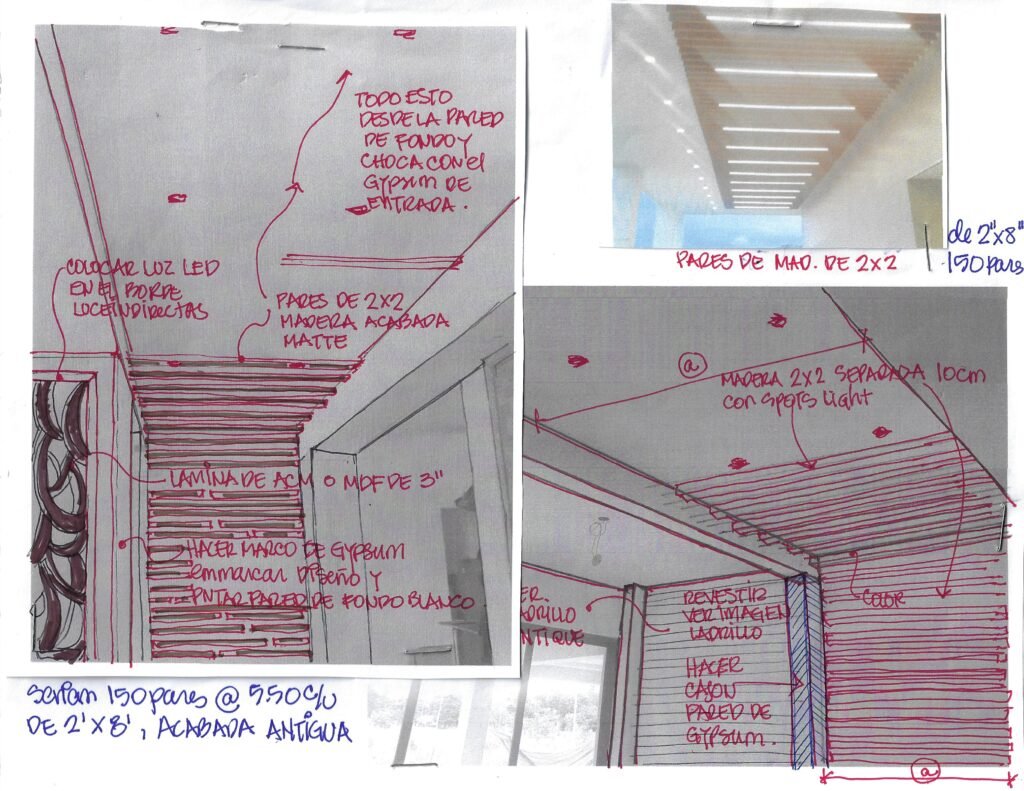 TODO ESTO
DESDE LA PARED
DE FONDO Y
CHOCA CON el
GYPSUM DE
ENTRADA.
COLOCAR LUZ LED
EN EL BORDE
LUCE INDIRECTAS
PARES DE 2X2
MADERA ACABADA
MATTE
LAMINA DE ACM O MDF DE 3"
HACER MARCO DE GYPSUM
emmarcar DISEÑO Y
PNTAR PARED DE FONDO BLANCO
serian 150 pares @ 550 c/u
DE 2' X 8', ACABADA ANTIGUA
PARES DE MAD. DE 2X2
de 2"x8"
150 pares
a
MADERA 2X2 SEPARADA 10cm
con SPOTS Light
COLOR
REVESTIR
VER IMAGEN
LADRILLO
HACER
CAJON
PARED DE
GYPSUM.
ER.
ADRILLO
NTIQUE
a